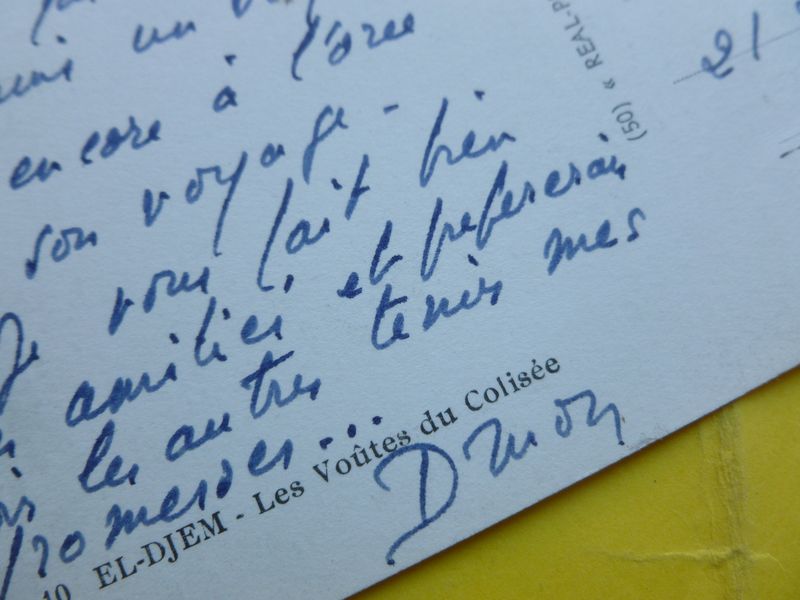 un
encore à l'orée
son voyage -
vous fait bien
amitiés, et prefererais
les autres tenir mes
promesses...
Dmoy
10 EL-DJEM - Les Voûtes du Colisée
(50) « REAL-P
21